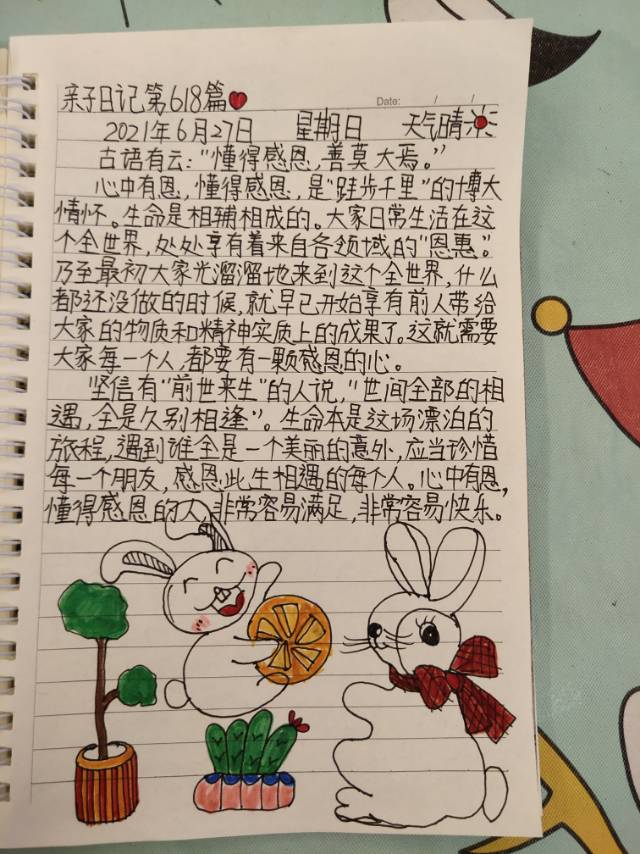 亲子日记第618篇
Date: / /
2021年6月27日 星期日 天气晴
古语有云:"懂得感恩,善莫大焉。"
心中有恩,懂得感恩,是"跬步千里"的博大
情怀。生命是相辅相成的。大家日常生活在这
个全世界,处处享有着来自各领域的"恩惠"。
乃至最初大家光溜溜地来到这个全世界,什么
都还没做的时候,就早已开始享有前人带给
大家的物质和精神实质上的成果了。这就需要
大家每一个人,都要有一颗感恩的心。
坚信有"前世来生"的人说,"世间全部的相
遇,全是久别相逢"。生命本是这场漂泊的
旅程,遇到谁全是一个美丽的意外,应当珍惜
每一个朋友,感恩此生相遇的每个人。心中有恩,
懂得感恩的人,非常容易满足,非常容易快乐。